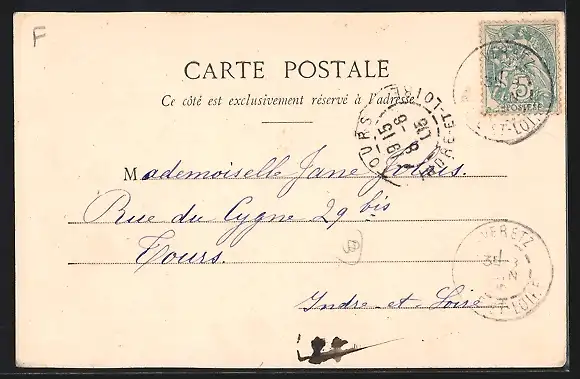 F
CARTE POSTALE
Ce côté est exclusivement réservé à l'adresse
TOURS
INDRE-ET-LOIRE
POSTES
5
Mademoiselle Jane
Rue du Cygne 29 bis
Tours.
Indre-et-Loire
VERETZ
ET-LOIRE